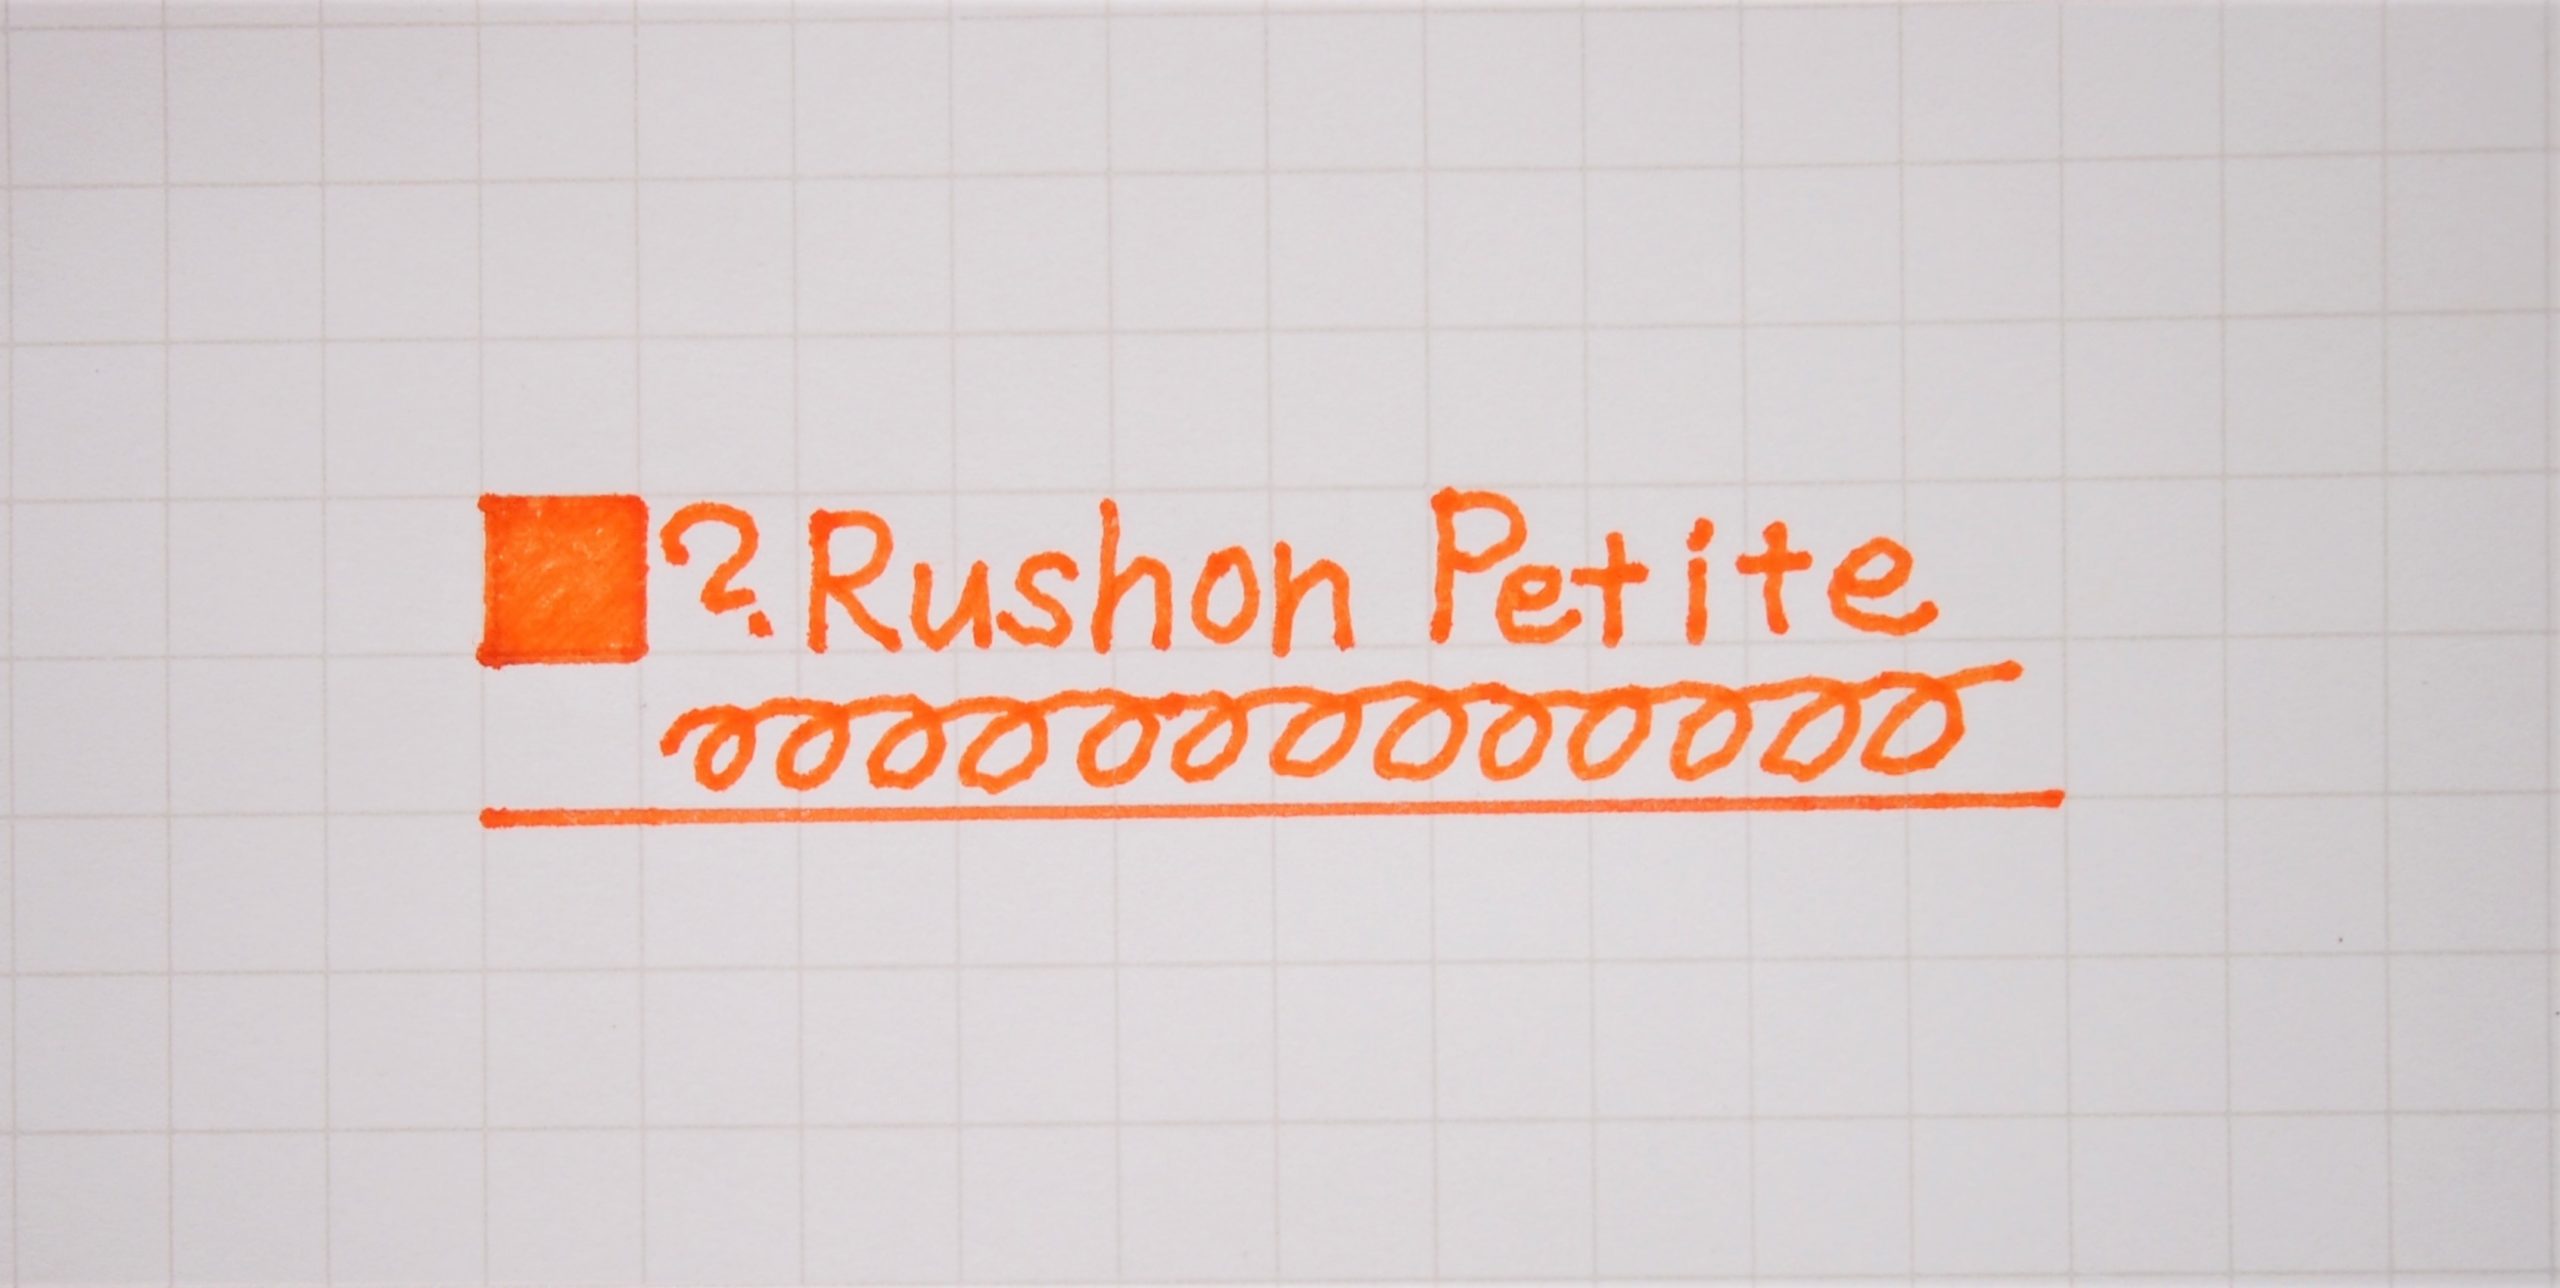 ? Rushon Petite